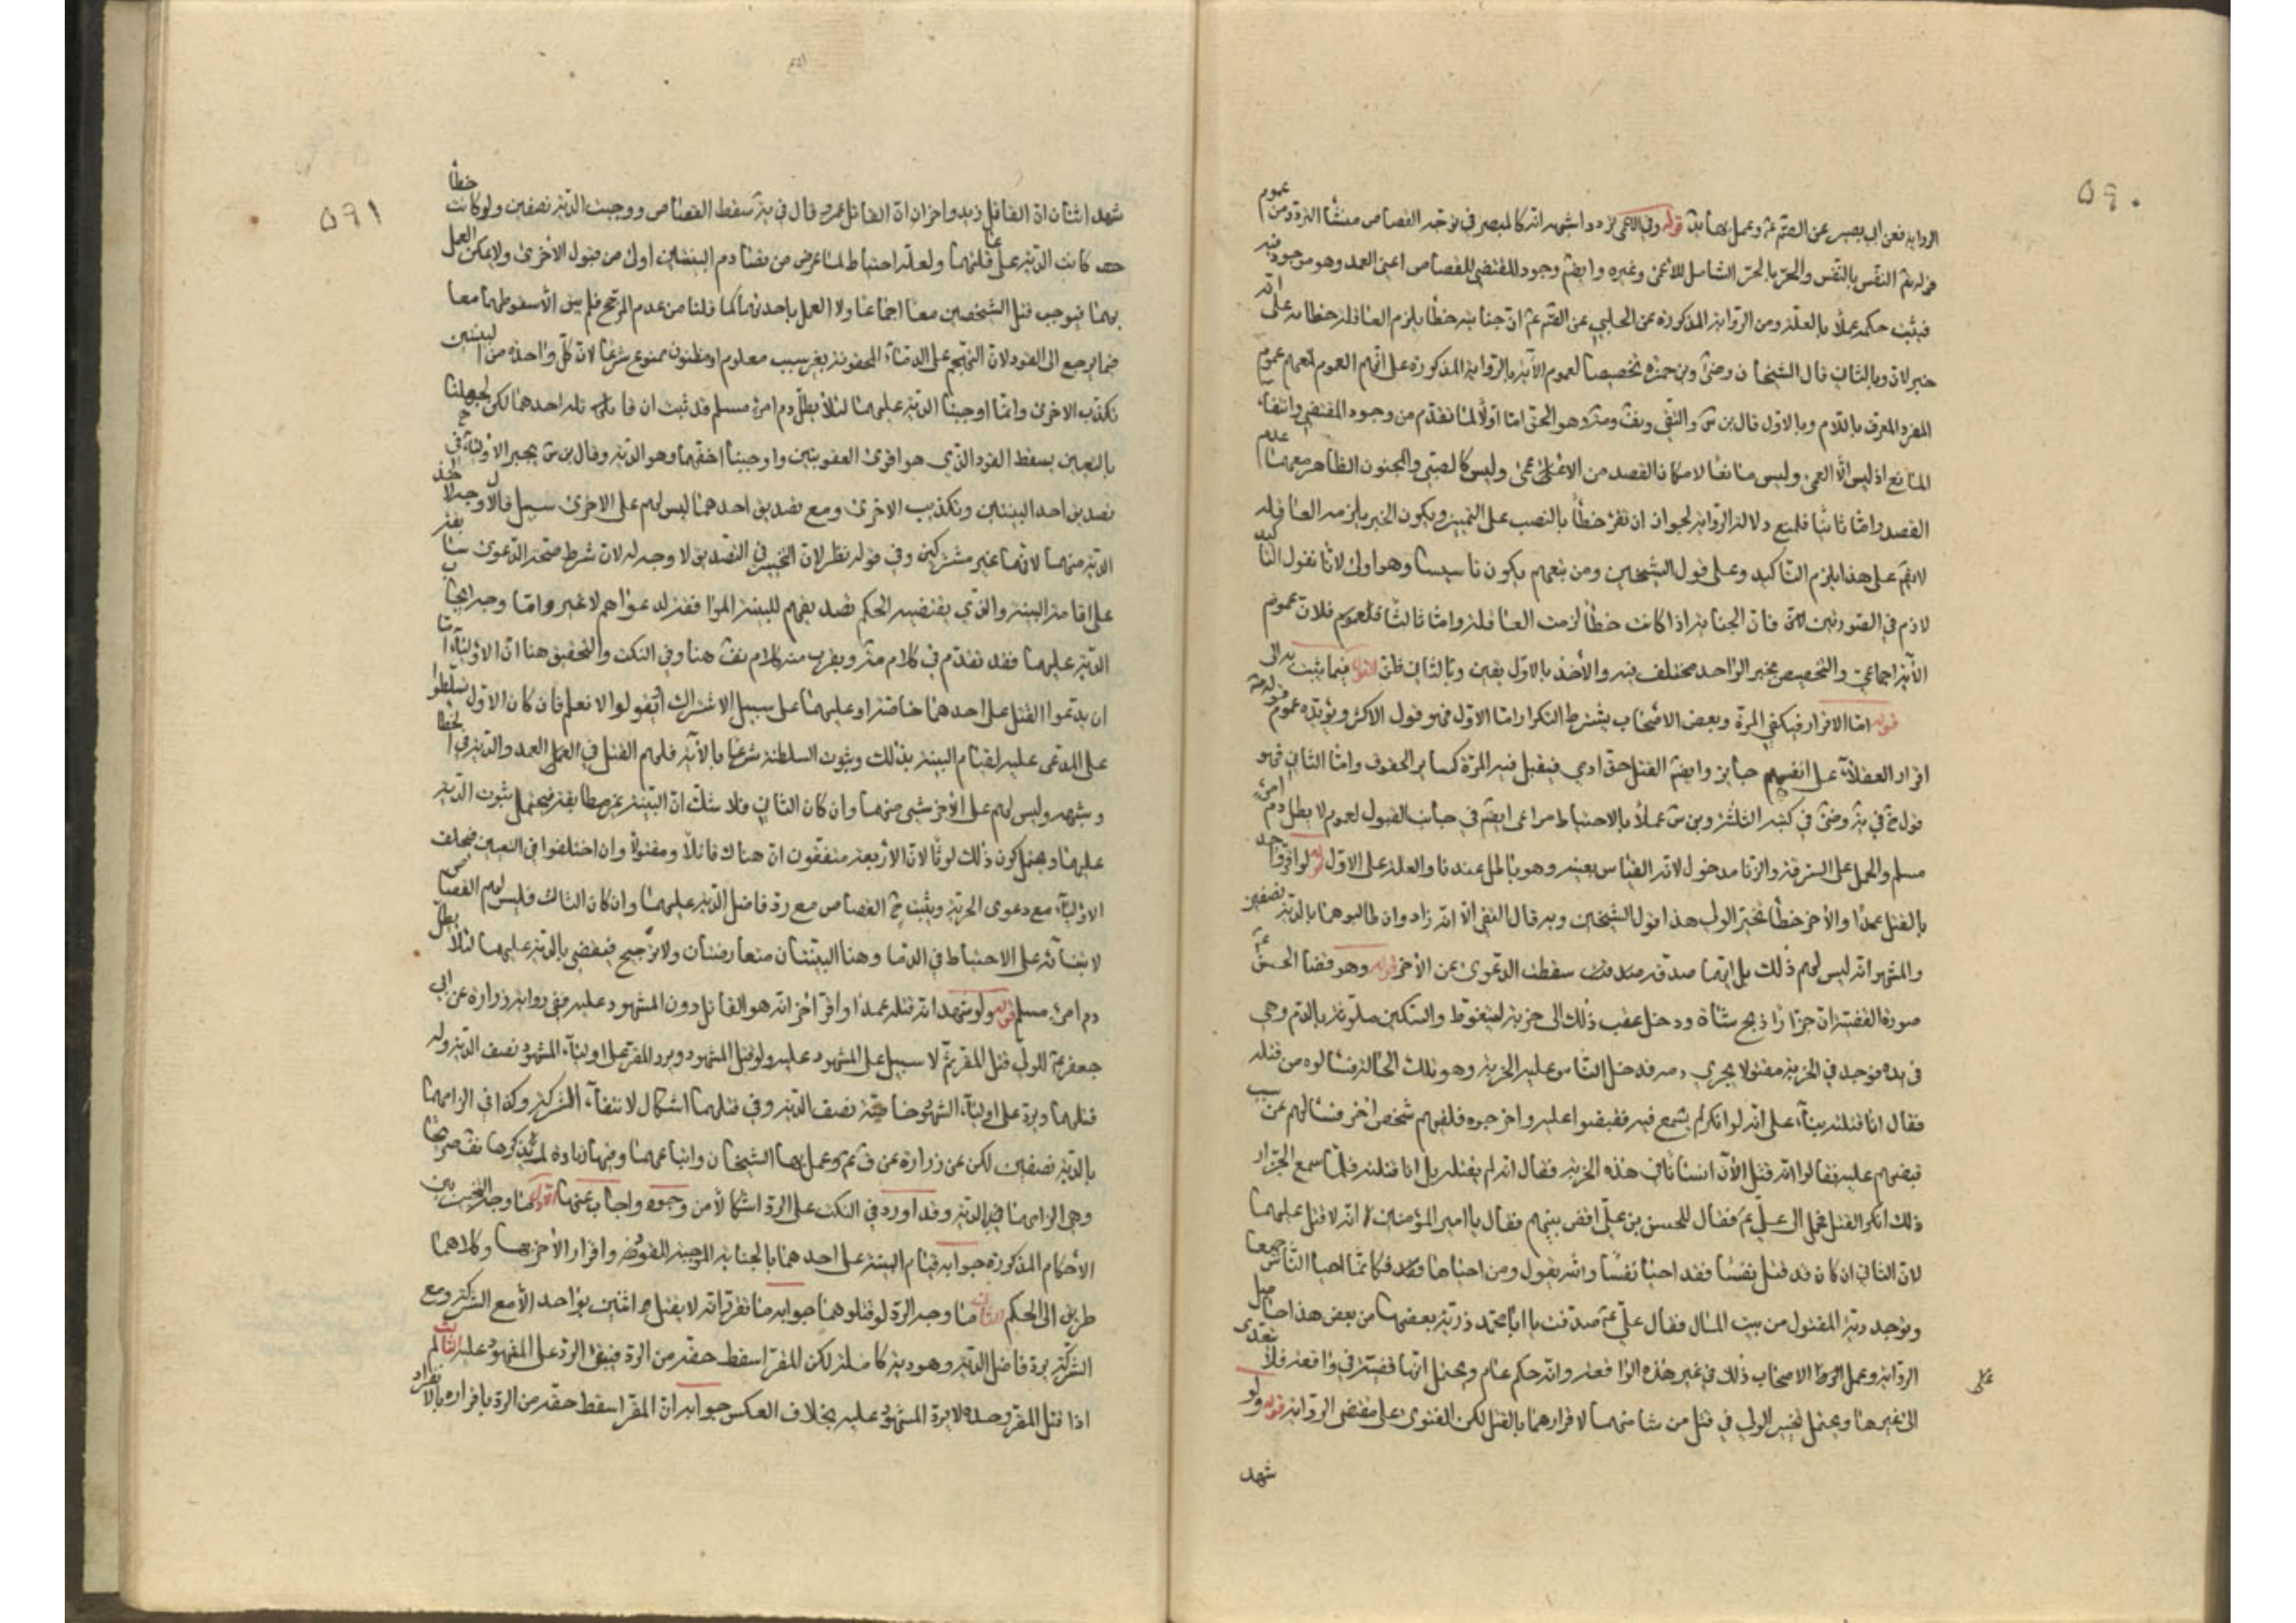 ٥٩٠
الرواية فعن ابي بصير عن الصّ عم وعمل بها يه قوله وفي الاعمى تردد اشبهه انه كالمبصر في توجه القصاص منشأ التردد من عموم
قوله تعم النفس بالنفس والحرّ بالحرّ الشامل للاعمى وغيره وايضم وجود المقتضي للقصاص اعني العمد وهو موجود فيه
فيثبت حكمه عملاً بالعلّة ومن الرواية المذكورة عن الحلبي عن الصّ عم انّ جنايته خطأ يلزم العاقلة خطاءه على انه
خبر لانّ وبالثاني قال الشيخان وبن حمزة تخصيصا لعموم الآية بالرواية المذكورة على انهم العموم عموم
المفرد المعرف باللام وبالاول قال بن س والتقي وهو الحق اما اولا لما تقدّم من وجود المقتضي وانتفاء
المانع اذ ليس الا العمى وليس مانعا لامكان القصد من الاعمى وليس كالصبّي والمجنون الظاهر معهما عدم
القصد وامّا ثانيا فلمنع دلالة الرواية لجواز ان تقرء خطأً بالنصب على التميز ويكون الخبر يلزمه العاقلة
لايقم على هذا يلزم التاكيد وعلى قول الشيخين ومن تبعهم يكون تاسيسا وهو اولى لانا نقول التاكيد
لازم في الصورتين فانّ الجناية اذا كانت خطأً لزمت العاقلة وامّا ثالثا فلانّ عموم
الآية اجماعي والتخصيص بخبر الواحد مختلف فيه والأخذ بالاول يقين وبالثاني ظن فيما يثبت به
قوله امّا الاقرار فيكفي المرّة وبعض الاصحاب يشترط التكرار امّا الاوّل فهو قول الاكثر ويؤيّده عموم قوله
اقرار العقلآء على انفسهم جايز وايضم القتل حق ادمي فيقبل فيه المرّة كساير الحقوق وامّا الثاني فهو
قول خ في يه وضى في كتبه الثلثة وبن س عملاً بالاحتياط مراعى ايضم في جانب القبول لعموم لا يطل دم امرء
مسلم والحمل على السرقة والزنا مدخول لانه القياس بعينه وهو باطل عندنا والعلة على الاول قوله لو اقرّ واحد
بالقتل عمدًا والآخر خطأ تخيّر الولي هذا قول الشيخين وبه قال التقي الّا انّه زاد وان طالبوهما بالدّية نصفين
والمشهور انه ليس لهم ذلك بل ايّهما صدقه سقطت الدّعوى عن الآخر قوله وهو قضا الحسن عم
صورة القضية انّ جزّارًا ذبح شاة ودخل عقيب ذلك الى خربة ليتغوّط والسكين ملوّثة بالدّم وهي
في يده فوجد في الخربة مقتولا يجري دمه فدخل الناس عليه الخربة وهو تلك الحالة فسالوه من قتله
فقال انا قتلته بناء على انه لو انكر لم يسمع فيه فقبضوا عليه واخرجوه فلقيهم شخص اخر فسالهم عن سبب
قبضهم عليه فقالوا انه قتل الآن انسانا في هذه الخربة فقال انه لم يقتله بل انا قتلته فلمّا سمع الجزّار
ذلك انكر القتل فحمل الى عليّ عم فقال للحسن بن عليّ اقض بينهم فقال يا امير المؤمنين انه لا قتل عليهما
لانّ الثاني ان كان قد قتل نفسًا فقد احيا نفسًا والله يقول ومن احياها فكانّما احيا الناس جميعا
ويوجد دية المقتول من بيت المال فقال عليّ عم صدقت يا ابا محمّد ذرّية بعضها من بعض هذا حاصل
الرّواية وعمل الاصحاب ذلك في غير هذه الواقعة وانه حكم عام ويحتمل انها قضيّة في واقعة فلا تتعدى
الى غيرها ويحتمل تخيير الولي في قتل من شا منهما لاقرارهما بالقتل لكن الفتوى على مقتضى الرواية قوله ولو
شهد
٥٩١
شهد اثنان انّ القاتل زيد واخران انّ القاتل عمرو قال في يه سقط القصاص ووجبت الديّة نصفين ولو كانت خطأً
كانت الدّية على عاقلتهما ولعلّه احتياط لما عرض من تصادم البينتين اولى من قبول الاخرى ولا يمكن العمل
بهما فيوجب قتل الشخصين معا اجماعا ولا العمل باحديهما كما قلنا من عدم المرجّح فلم يبق الّا سقوطهما معا
فيما يرجع الى القود لانّ التهجّم على الدماء المحقونة بغير سبب معلوم او مظنون ممنوع شرعًا لانّ كلّ واحدة من البينتين
تكذّب الاخرى وانّما اوجبنا الدّية عليهما لئلا يطلّ دم امرء مسلم قد ثبت ان قاتله احدهما لكن لجهلنا
بالتعيين يسقط القود الّذي هو اقوى العقوبتين واوجبنا اخفّهما وهو الدّية وقال بن س يخير الاولياء في
تصديق احد البينتين وتكذيب الاخرى ومع تصديق احدهما ليس لهم على الاخرى سبيل فلا وجه لاخذ
الدّية منهما لانّهما غير مشتركين وفي قوله نظر لانّ التخيير في التصديق لا وجه له لانّ شرط صحّة الدّعوى
على اقامة البينة والّذي يقتضيه الحكم تصديقهم للبينة الموافقة لدعواهم لا غير وامّا وجه ايجاب
الدّية عليهما فقد تقدّم في كلام ويقرب منه كلام هنا وفي النكت والتحقيق هنا انّ الاولياء امّا
ان يدّعوا القتل على احدهما خاصّة او عليهما على سبيل الاشتراك او يقولوا لا نعلم فان كان الاول تسلّطوا
على المدّعى عليه لقيام البينة بذلك وثبوت السلطنة شرعًا بالآية فلهم القتل في العمد والدّية في الخطا
وشبهه وليس لهم على الآخر شي منهما وان كان الثاني فلا شكّ انّ البيّنة غير مطابقة فيحتمل ثبوت الدّية
عليهما ويحتمل كون ذلك لوثًا لانّ الاربعة متفقون انّ هناك قاتلًا ومقتولًا وان اختلفوا في التعيين فيحلف
الاولياء مع دعوى الجزم ويثبت ح القصاص مع ردّ فاضل الدّية عليهما وان كان الثالث فليس لهم القصاص
لابتنائه على الاحتياط في الدما وهنا البيّنتان متعارضتان ولا ترجيح فيقضى بالدّية عليهما لئلا يطلّ
دم امرء مسلم قوله ولو شهدا انه قتله عمدًا واقرّ اخر انه هو القاتل دون المشهود عليه ففي رواية زرارة عن ابي
جعفر عم للوليّ قتل المقر ثمّ لا سبيل على المشهود عليه ولو قتل المشهود ويرد المقر على اولياء المشهود نصف الدّية وله
قتلهما ويردّ على اولياء المشهود خاصّة نصف الدّية وفي قتلهما اشكال لانتفاء الشركة وكذا في الزامهما
بالدّية نصفين لكن عن زرارة عن عم وعمل بها الشيخان واتباعهما وفيها زيادة لم يذكرها
وهي الزامهما بالدّية وقد اورد في النكت على الردّ اشكالًا من وجوه واجاب عنها وجه التخيير بين
الأحكام المذكورة جوابه قيام البينة على احدهما بالجناية الموجبة للقود واقرار الآخر بها وكلاهما
طريق الى الحكم الثاني ما وجه الردّ لو قتلوهما جوابه ما تقرّر انه لا يقتل اثنين بواحد الّا مع الشركة ومع
الشركة يردّ فاضل الدّية وهو دية كاملة لكن المقرّ اسقط حقه من الردّ فيبقى الردّ على المشهود عليه الثالث لم
اذا قتل المقر وحده لا يردّ المشهود عليه بخلاف العكس جوابه انّ المقرّ اسقط حقه من الردّ باقراره بالانفراد